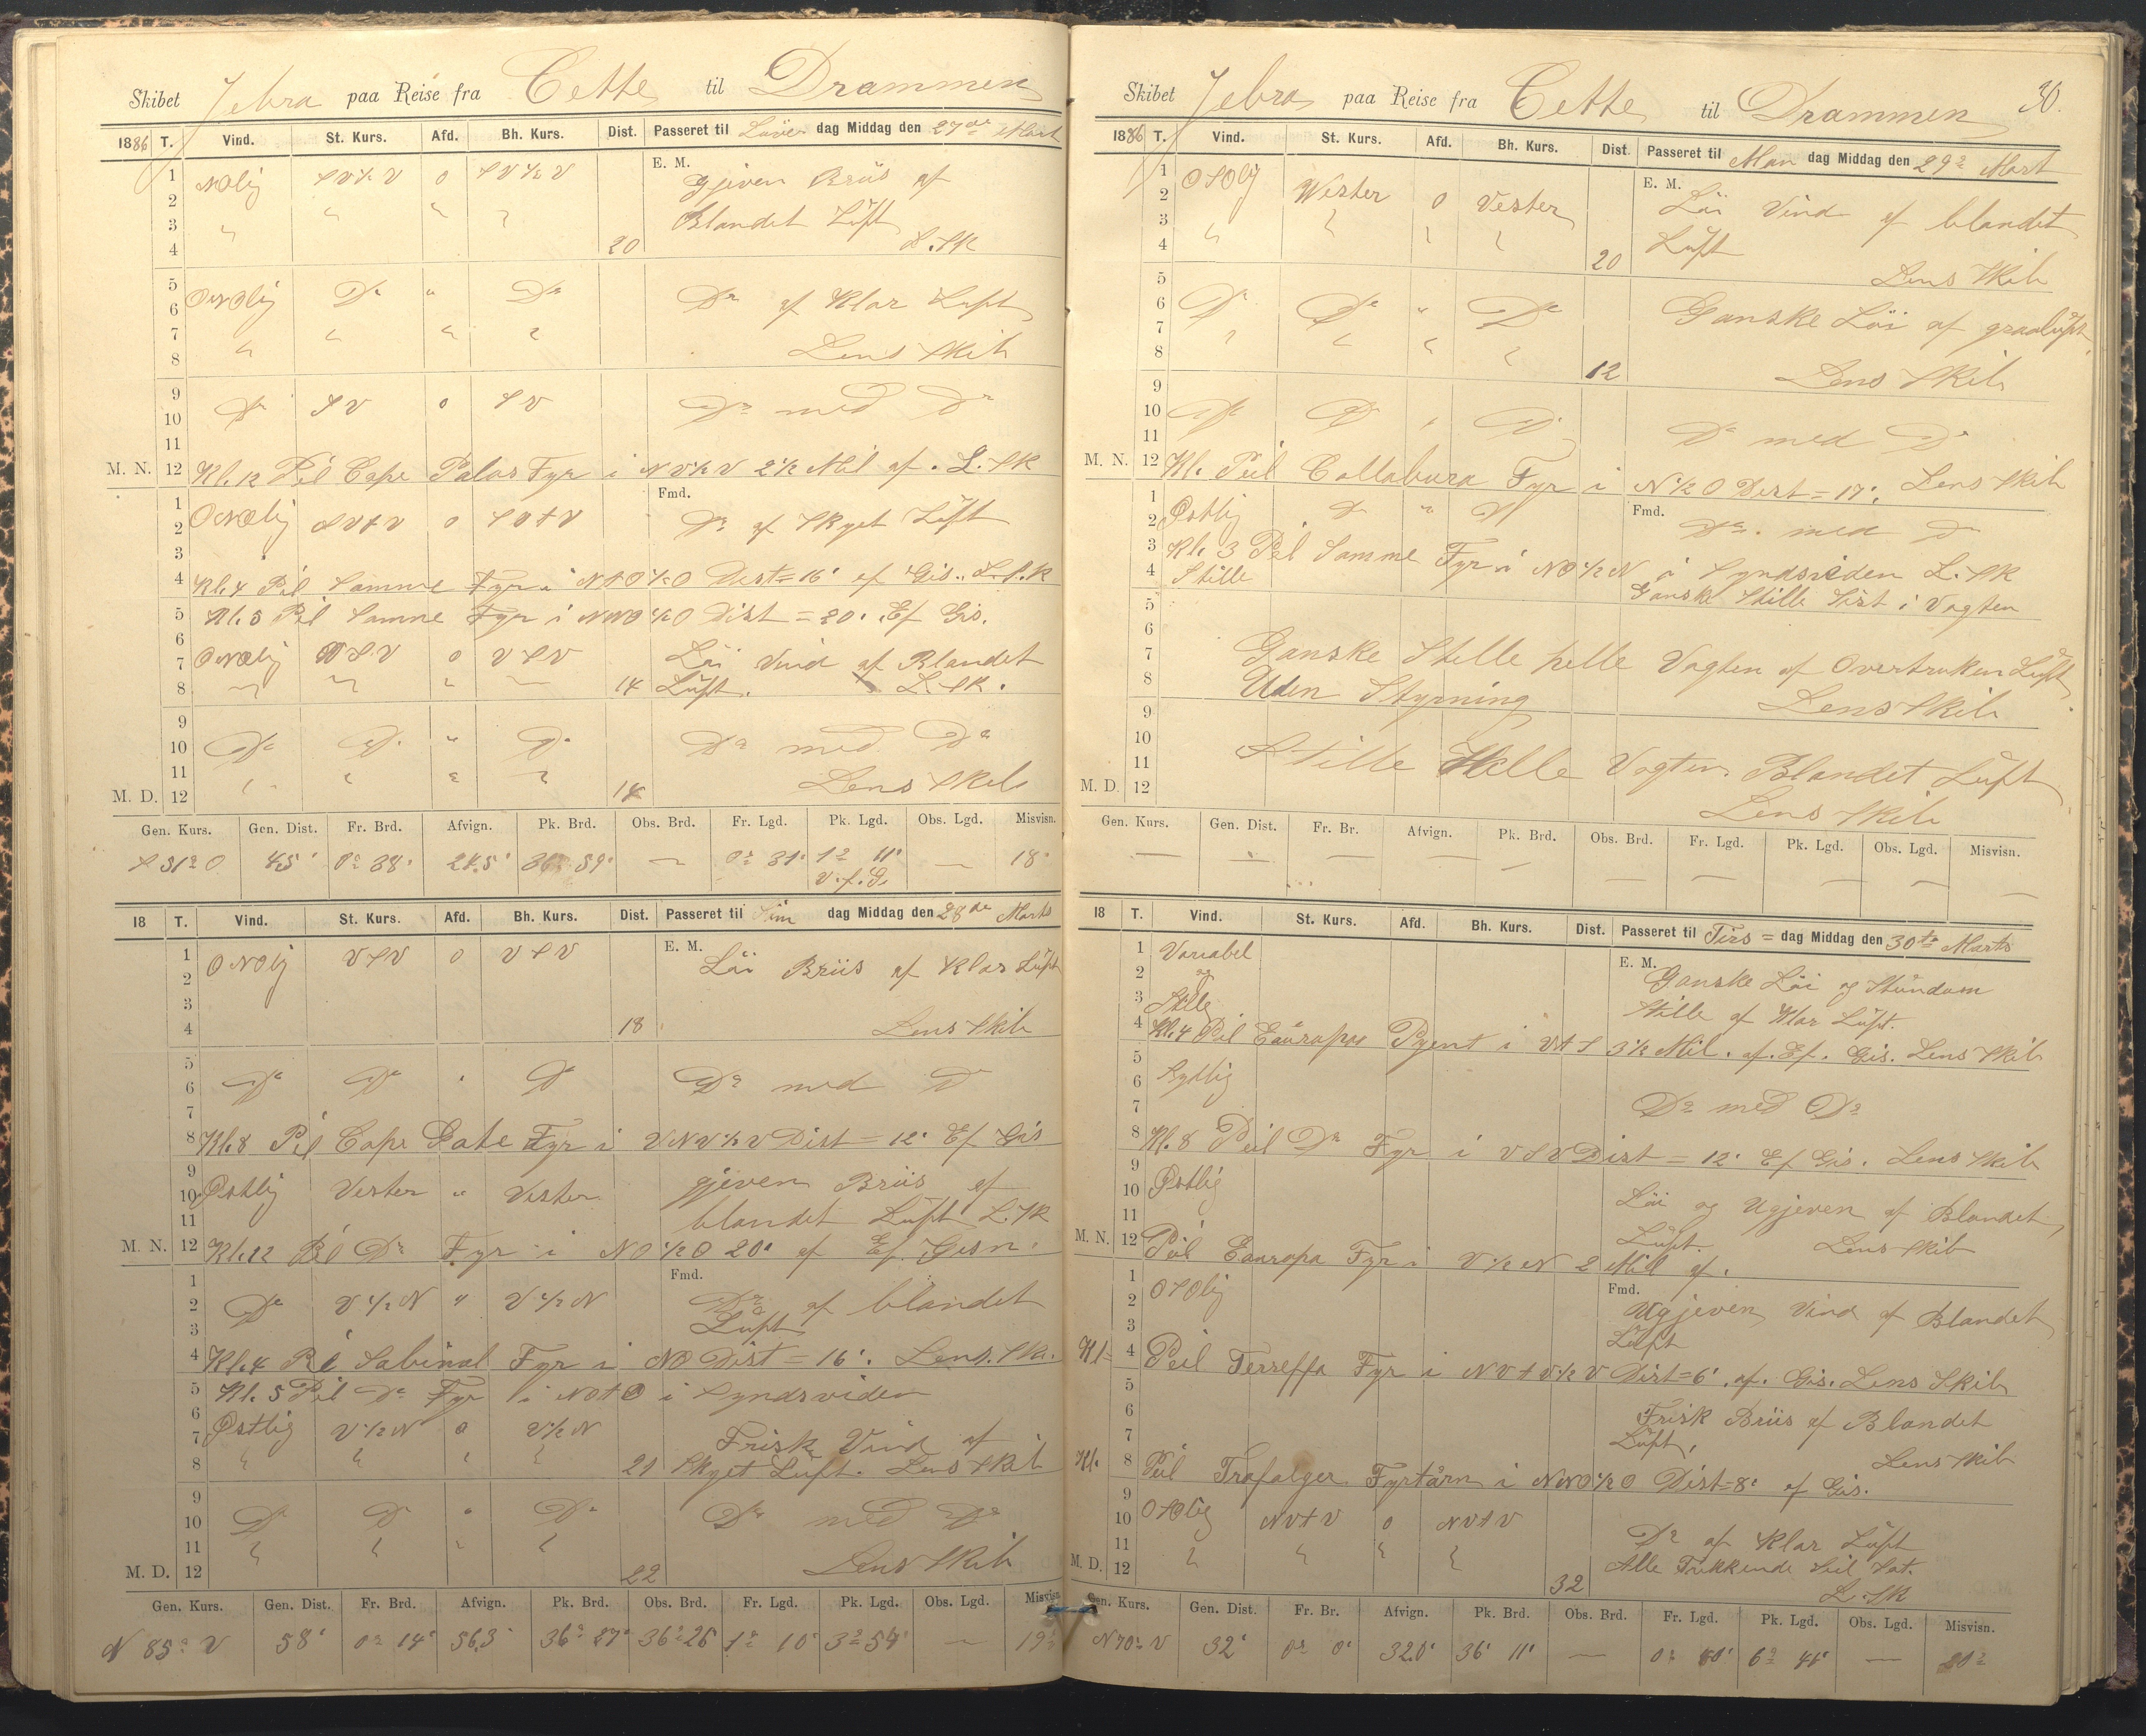 Skibet Jebra paa Reise fra Cette til Drammen
1886 T. Vind. St. Kurs. Afd. Bh. Kurs. Dist. Passeret til Löver dag Middag den 27de Mart
E. M.
1 NOlig SV½V 0 SV½V Gjeven Briis af
2 Blandet Lüft
3
4 20 L. Sk
5 ONOlig Do " Do Do af Klar Luft
6
7
8 Lens Skib
9 Do SV 0 SV Do med Do
10
11
M. N. 12 Kl. 12 Peil Cape Palos Fyr i NV½V 2½ Mil af. L. Sk
Fmd.
1 ONOlig SVtV 0 SVtV Do af Skyet Lüft
2
3
4 Kl. 4 Peil Samme Fyr i NtO½O Dist = 16' ef Gis. L. Sk
5 Kl. 5 Peil Samme Fyr i NNO½O Dist = 20' Ef Gis.
6
7 ONOlig VSV 0 VSV Löi Vind af Blandet
8 14 Lüft. L. Sk.
9 Do Do " Do Do med Do
10
11 Lens Skib
M. D. 12 14
Gen. Kurs. Gen. Dist. Fr. Brd. Afvign. Pk. Brd. Obs. Brd. Fr. Lgd. Pk. Lgd. Obs. Lgd. Misvisn.
S 31° O 45' 0° 38' 24.5' 36° 59' — 0° 31' 1° 11' — 18°
V. f. G.
18 T. Vind. St. Kurs. Afd. Bh. Kurs. Dist. Passeret til Sön dag Middag den 28de Marts
E. M.
1 ONOlig VSV 0 VSV Löi Briis af Klar Lüft
2
3
4 18 Lens Skib
5
6 Do Do " Do Do med Do
7
8 Kl. 8 Peil Cape Gate Fyr i VNV½V Dist = 12' Ef Gis
9
10 Östlig Vester " Vester gjeven Briis af
11 blandet Lüft L. Sk
M. N. 12 Kl. 12 Peil Do Fyr i NO½O 20' af Ef. Gisn.
Fmd.
1
2 Do V½N " V½N Do af blandet
3 Lüft
4 Kl. 4 Peil Sabinal Fyr i NO Dist = 16'. Lens. Sk.
5 Kl. 5 Peil Do Fyr i NOtO i Syndsviden
6 Östlig V½N 0 V½N
7 Frisk Vind af
8 21 Skyet Lüft. Lens Skib
9
10 Do Do " Do Do med Do
11
M. D. 12 22 Lens Skib
Gen. Kurs. Gen. Dist. Fr. Brd. Afvign. Pk. Brd. Obs. Brd. Fr. Lgd. Pk. Lgd. Obs. Lgd. Misvisn.
N 85° V 58' 0° 14' 56.3' 36° 27' 36° 26' 1° 10' 3° 54' — 19°
Skibet Jebra paa Reise fra Cette til Drammen 30.
1886 T. Vind. St. Kurs. Afd. Bh. Kurs. Dist. Passeret til Man dag Middag den 29de Mart
E. M.
1 OSOlig Wester 0 Vester Löi Vind af blandet
2
3 Luft
4 20 Lens Skib
5
6 Do Do " Do Ganske Löi af graalüft
7
8 12 Lens Skib
9
10 Do Do " Do
11 Do med Do
M. N. 12 Kl. Peil Collabura Fyr i N½O Dist = 17'. Lens Skib
Fmd.
1
2 Östlig Do " Do Do. med Do
3 Kl. 3 Peil Samme Fyr i NO½N i Syndsviden L. Sk
4 Stille Ganske Stille Sist i Vagten
5
6
7 Ganske Stille helle Vagten af Overtruken Lüft
8 Uden Styrning Lens Skib
9
10
11 Stille Helle Vagten. Blandet Lüft
M. D. 12 Lens Skib
Gen. Kurs. Gen. Dist. Fr. Br. Afvign. Pk. Brd. Obs. Brd. Fr. Lgd. Pk. Lgd. Obs. Lgd. Misvisn.
— — — — — — — — — —
18 T. Vind. St. Kurs. Afd. Bh. Kurs. Dist. Passeret til Tirs = dag Middag den 30te Marts
E. M.
1 Variabel
2 og Ganske Löi og Stundom
3 Stille Stille af Klar Lüft.
4 Kl. 4 Peil Eauropas Pyent i VtS 3½ Mil. af. Ef. Gis. Lens Skib
5
6 Sydlig
7 Do med Do
8 Kl. 8 Peil Do Fyr i VSV Dist = 12' Ef Gis. Lens Skib
9
10 Östlig Löi og Ugjeven af Blandet
11 Lüft. Lens Skib
M. N. 12 Peil Eauropa Fyr i V½N 2 Mil af.
Fmd.
1 OSOlig
2 Ugjeven Vind af Blandet
3 Lüft
Kl= 4 Peil Tereffa Fyr i NVtV½V Dist=6' af. Gis. Lens Skib
5
6 Frisk Briis af Blandet
7 Lüft, Lens Skib
Kl. 8 Peil Trafalger Fyrtårn i NNO½O Dist=8' af Gis.
9
10 OSOlig NVtV 0 NVtV
11 Do af Klar Lüft
M. D. 12 32 Alle Trækkende Seil Sat.
L. Sk
Gen. Kurs. Gen. Dist. Fr. Br. Afvign. Pk. Brd. Obs. Brd. Fr. Lgd. Pk. Lgd. Obs. Lgd. Misvisn.
N 70° V 32' 0° 0' 32.0' 36° 11' — 0° 40' 6° 44' — 20°